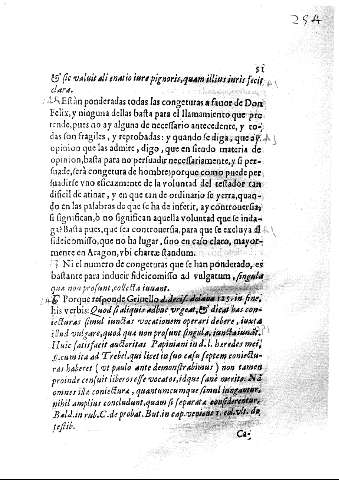 254
51
& sic valuit alienatio iure pignoris, quam illius iuris fecit
clara.
Están ponderadas todas las congeturas a fauor de Don
Felix, y ninguna dellas basta para el llamamiento que pre
tende, pues no ay alguna de necessario antecedente, y to-
das son fragiles, y reprobadas: y quando se diga, que ay
opinion que las admite, digo, que en siendo materia de
opinion, basta para no persuadir necessariamente, y si per-
suade, será congetura de hombre; porque como puede per-
suadirse vno eficazmente de la voluntad del testador tan
dificil de atinar, y en que tan de ordinario se yerra, quan-
do en las palabras de que se ha de inferir, ay controuersia;
si significan, ò no significan aquella voluntad que se inda-
ga? Basta pues, que sea controuersia, para que se excluya el
fideicomisso, que no ha lugar, sino en caso claro, mayor-
mente en Aragon, vbi chartæ standum.
Ni el numero de congeturas que se han ponderado, es
bastante para inducir fideicomisso ad vulgatum, singula
quæ non prosunt, collecta iuuant.
Porque responde Griuello d. decis. dolana 125. in fine,
his verbis: Quod si aliquis adhuc vrgeat, & dicat has con-
iecturas simul iunctas vocationem operari debere, iuxta
illud vulgare, quod quæ non prosunt singula, iuncta iuuant.
Huic satisfacit auctoritas Papiniani in d. l. heredes mei,
§. cum ita ad Trebel. qui licet in suo casu septem coniectu-
ras haberet (vt paulo ante demonstrabimus) non tamen
proinde censuit liberos esse vocatos, idque sanè merito. Nã
omnes istæ coniecturæ, quantumcumque simul iungantur,
nihil amplius concludunt, quam si separatæ considerentur.
Bald. in rub. C. de probat. Butr. in cap. veniens 1. col. vlt. de
testib.
Ca-